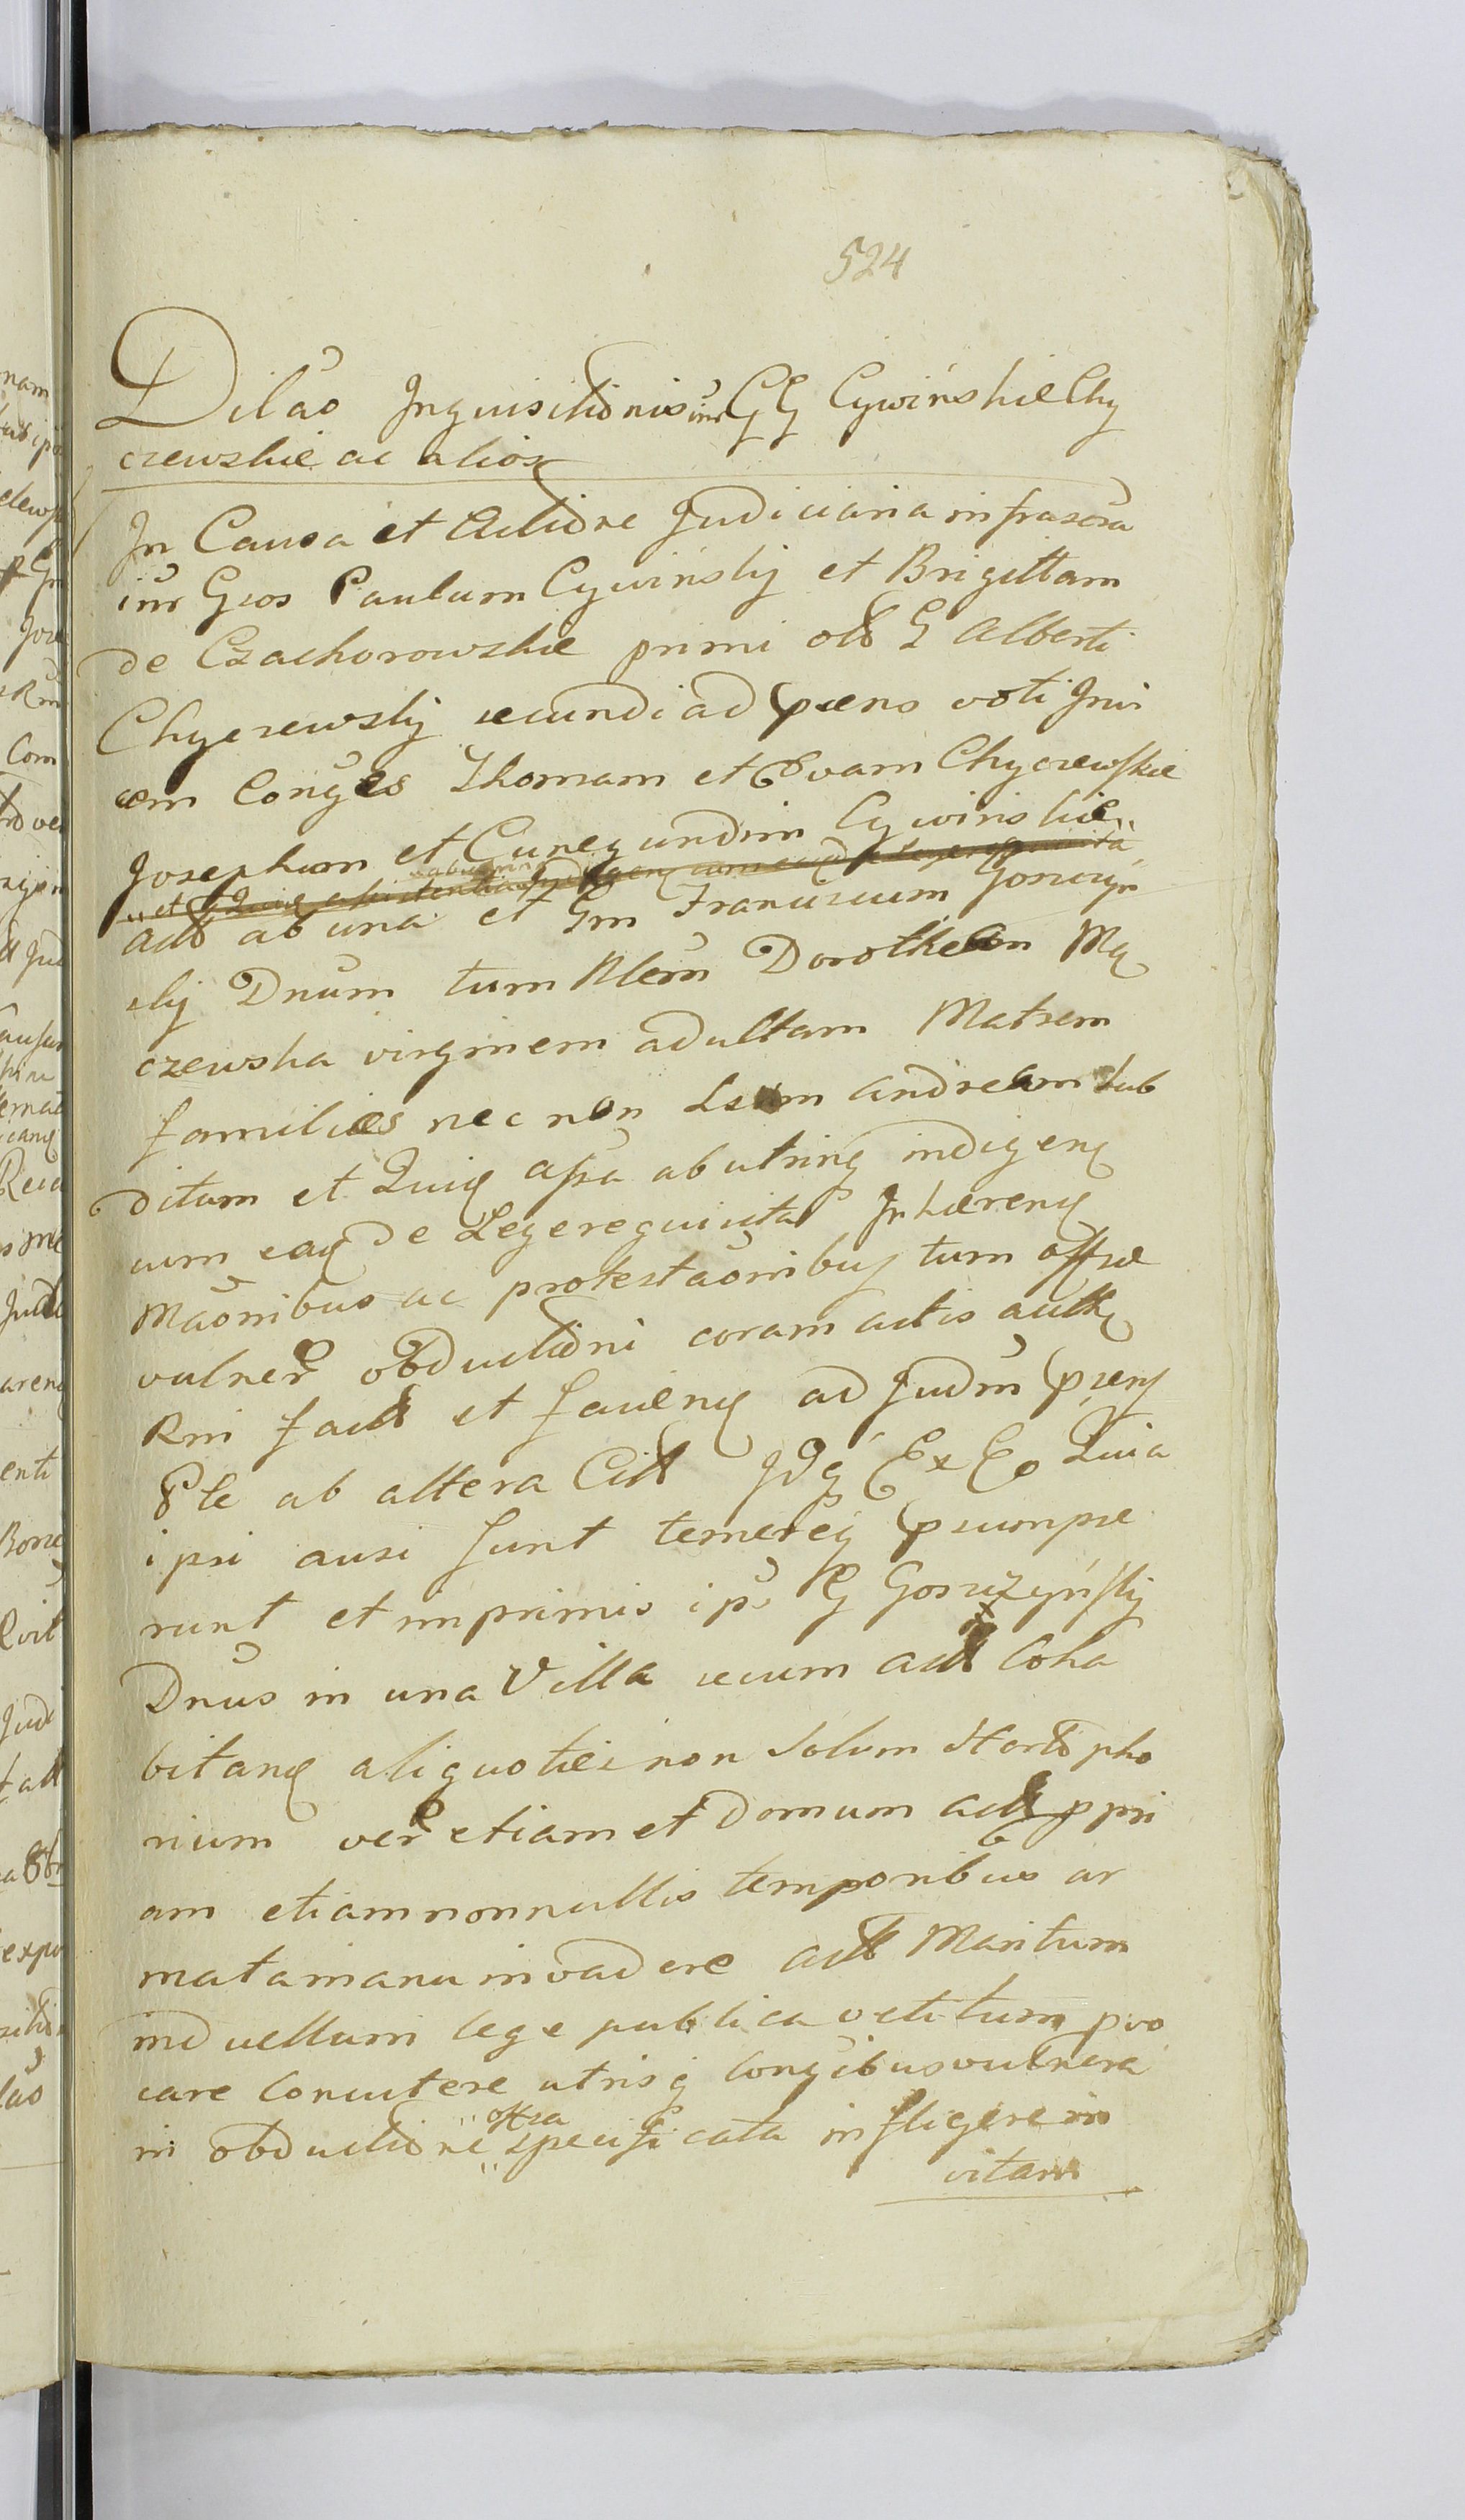 524
Dilao Inquisitionis inr GG Cywinskie Chy
czewskie ac alios
In Causa et Actione Judiciaria infrascra
inr Gsos Paulum Cywinskij et Brigittam
de Czachorowskie primi olt G Alberti
Chyczewskij secundi ad praens voti Invi
cem Conges Thomam et Evam Chyczewskie
Josephum et Cunegundim Cywinskie
et
Act ab una et Gm Franciscum Goszczyn
skij Dnum tum Nlem Dorotheam Ma
czewska virginem adultam Matrem
familias nec non Lsum Andream sub
ditum et Quie assa ab utrinq indigen
cum eaq de Lege requisita Inhaeren
Maonibus ac protestaonibus tum ossae
vulner obductioni coram actis auth
Rni fact et faven ad Judm praens
Pte ab altera Citt Idq Ex Eo Quia
ipsi ausi sunt temereq praesumpse
runt et imprimis ips G Goszczynskij
Dnus in una Villa secum act Coha
bitan aliquoties non solum Hortt pho
rium ver etiam et Domum act ppri
am etiam nonnullis temporibus ar
mata manu invadere act Maritum
in duellum lege publica vetitum pvo
care Concutere utrisq Congibus vulnera
in obductione ossa specificata infligere in
vitam